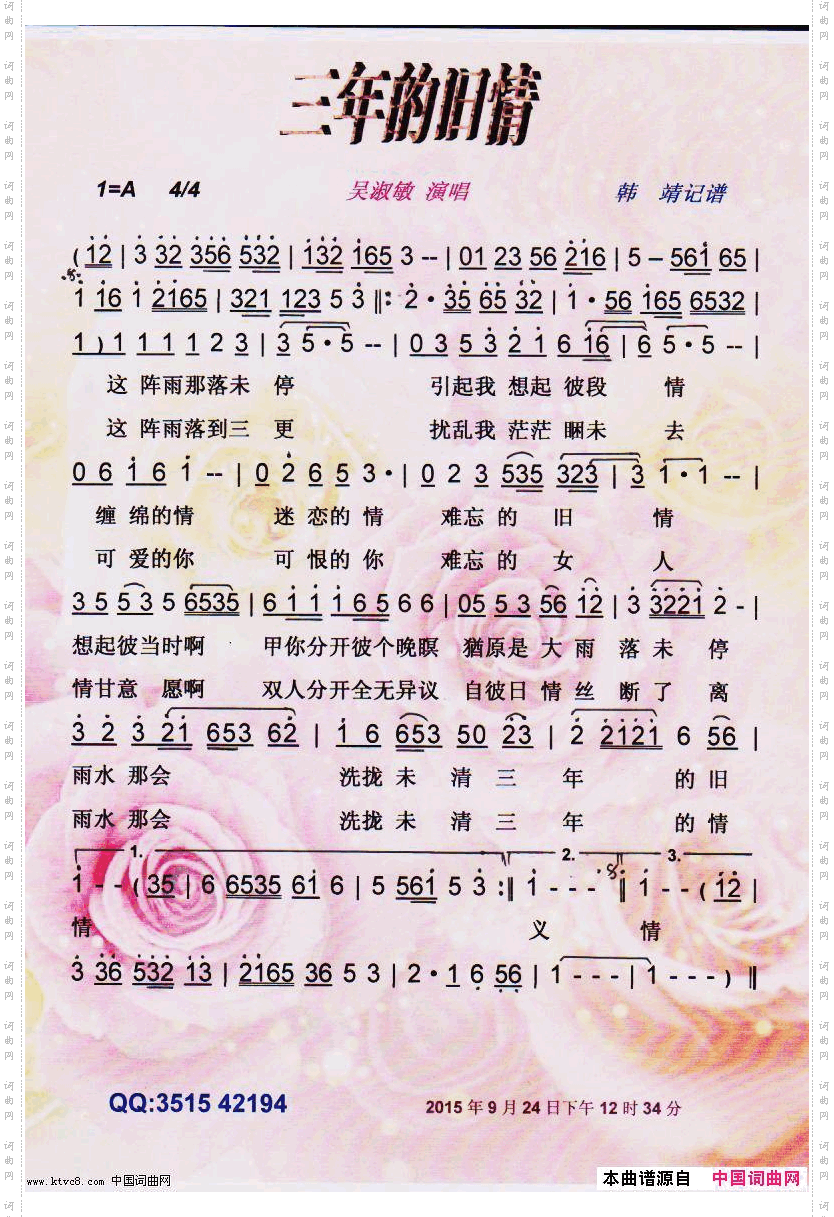 三年的旧情
1=A 4/4 吴淑敏 演唱 韩 靖记谱
( 12 | 3 32 356 532 | 132 165 3 -- | 01 23 56 216 | 5 – 561 65 |
1 16 1 2165 | 321 123 5 3 ‖: 2 · 35 65 32 | 1 · 56 165 6532 |
1 ) 1 1 1 1 2 3 | 3 5 · 5 -- | 0 3 5 3 2 1 6 16 | 6 5 · 5 -- |
这 阵雨那落未 停 引起我 想起 彼段 情
这 阵雨落到三 更 扰乱我 茫茫 睏未 去
0 6 1 6 1 -- | 0 2 6 5 3 · | 0 2 3 535 323 | 3 1 · 1 -- |
缠 绵的情 迷 恋的 情 难忘 的 旧 情
可 爱的你 可 恨的 你 难忘 的 女 人
3 5 5 3 5 6535 | 6 1 1 1 6 5 6 6 | 05 5 3 56 12 | 3 3221 2 - |
想起彼当时啊 甲你分开彼个晚暝 猶原是 大 雨 落 未 停
情甘意 愿啊 双人分开全无异议 自彼日 情 丝 断 了 离
3 2 3 21 653 62 | 1 6 653 50 23 | 2 2121 6 56 |
雨水 那会 洗拢 未 清 三 年 的 旧
雨水 那会 洗拢 未 清 三 年 的 情
1. 2. 3.
1 - - ( 35 | 6 6535 61 6 | 5 561 5 3 :‖ 1 - - - ‖ 1 - - ( 12 |
情 义 情
3 36 532 13 | 2165 36 5 3 | 2 · 1 6 56 | 1 - - - | 1 - - - ) ‖
QQ:3515 42194 2015 年 9 月 24 日下午 12 时 34 分
www.ktvc8.com 中国词曲网 本曲谱源自 中国词曲网